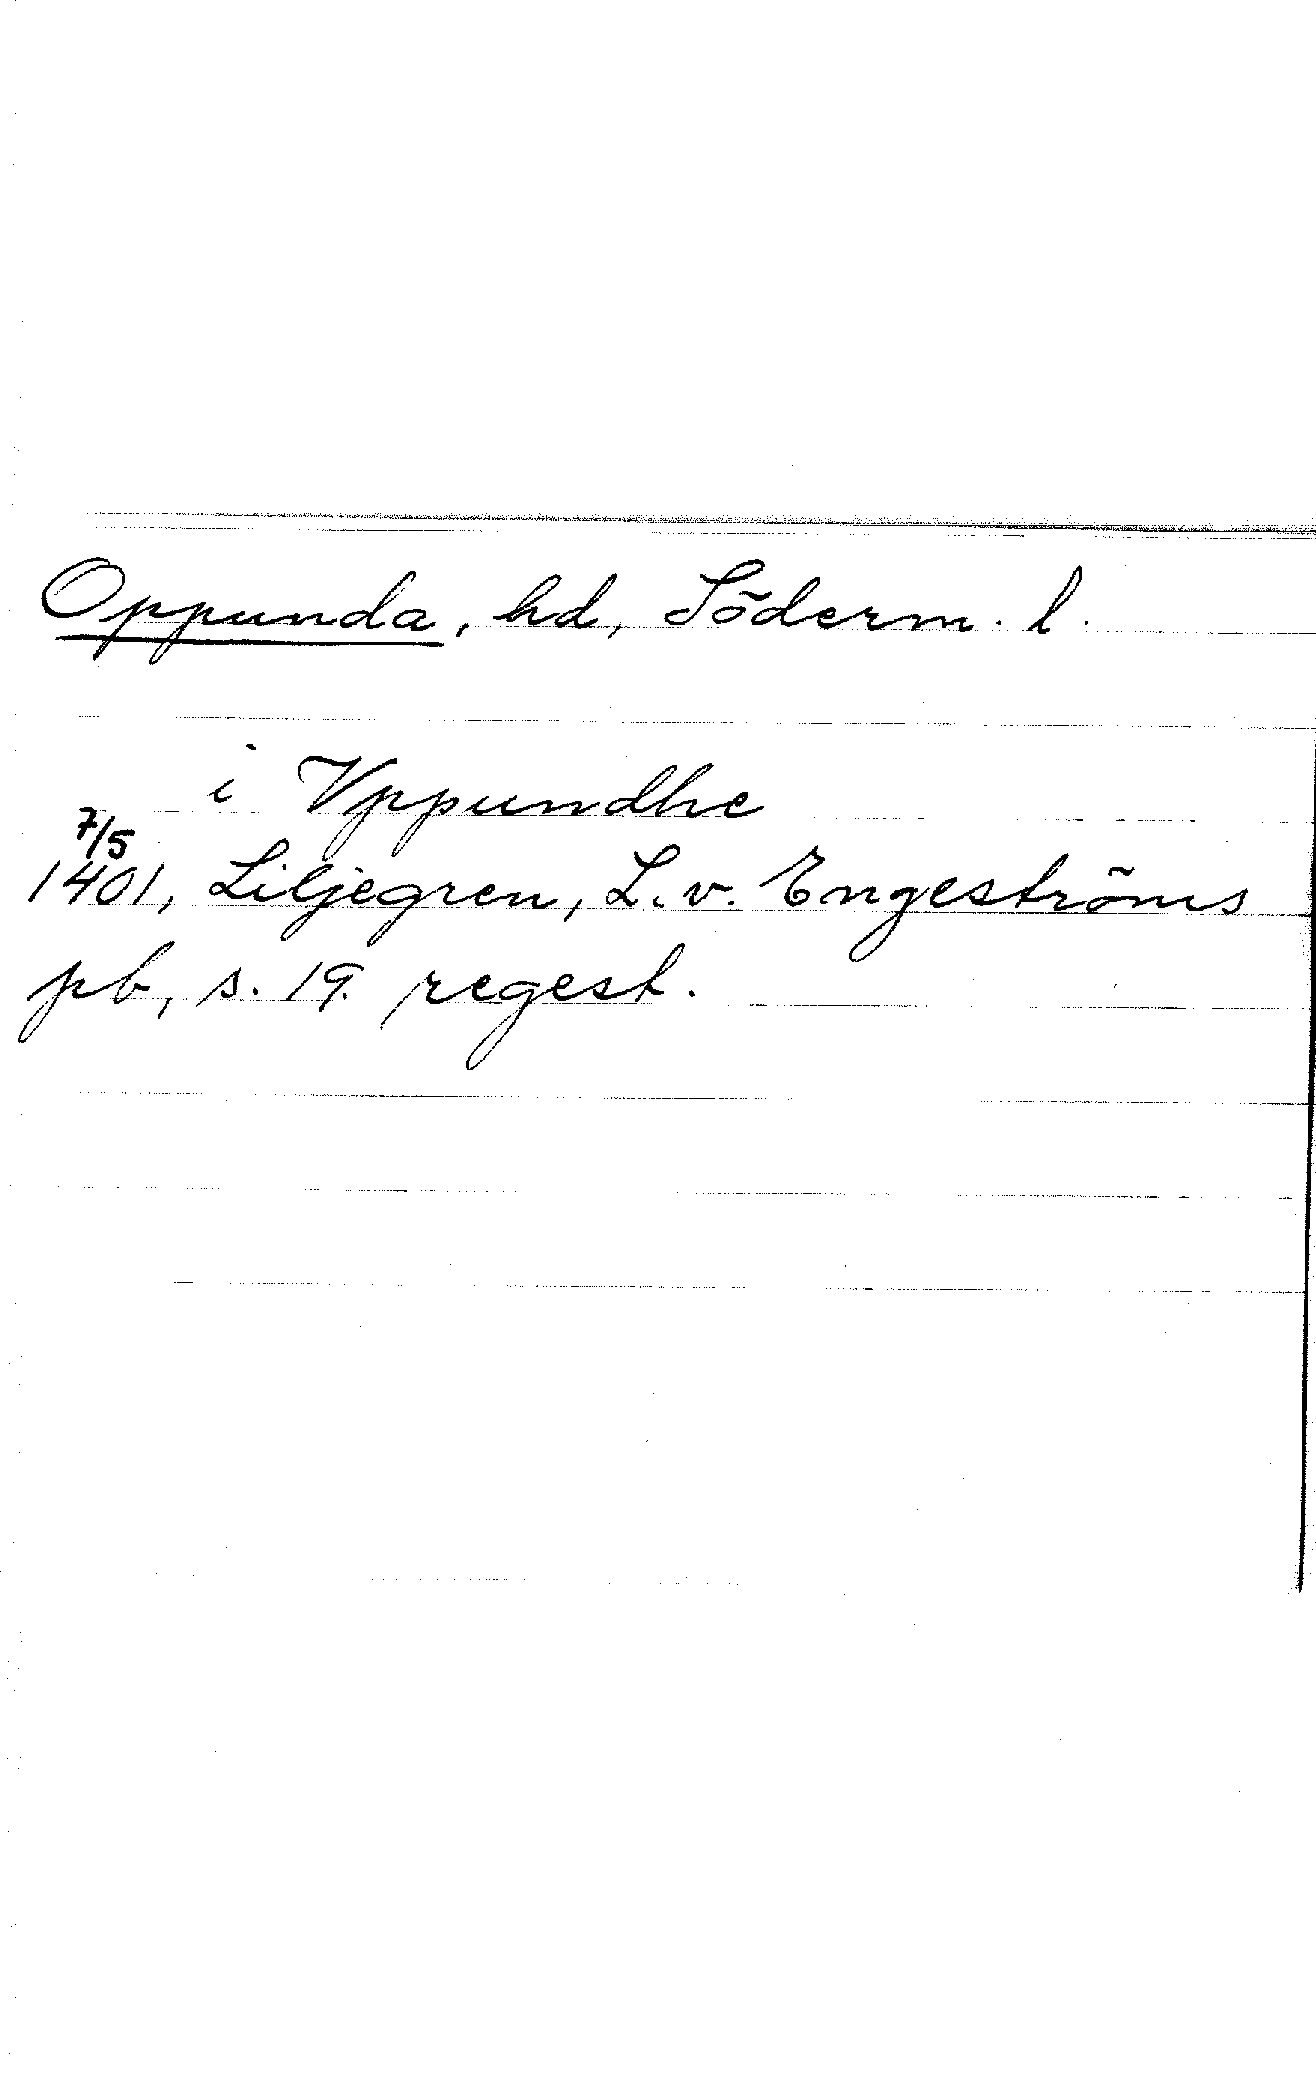 Oppunda, hd, Söderm. l.
i Vppundhe
7/5
1401, Liljegren, L. v. Engeströms
pb, s. 19. regest.